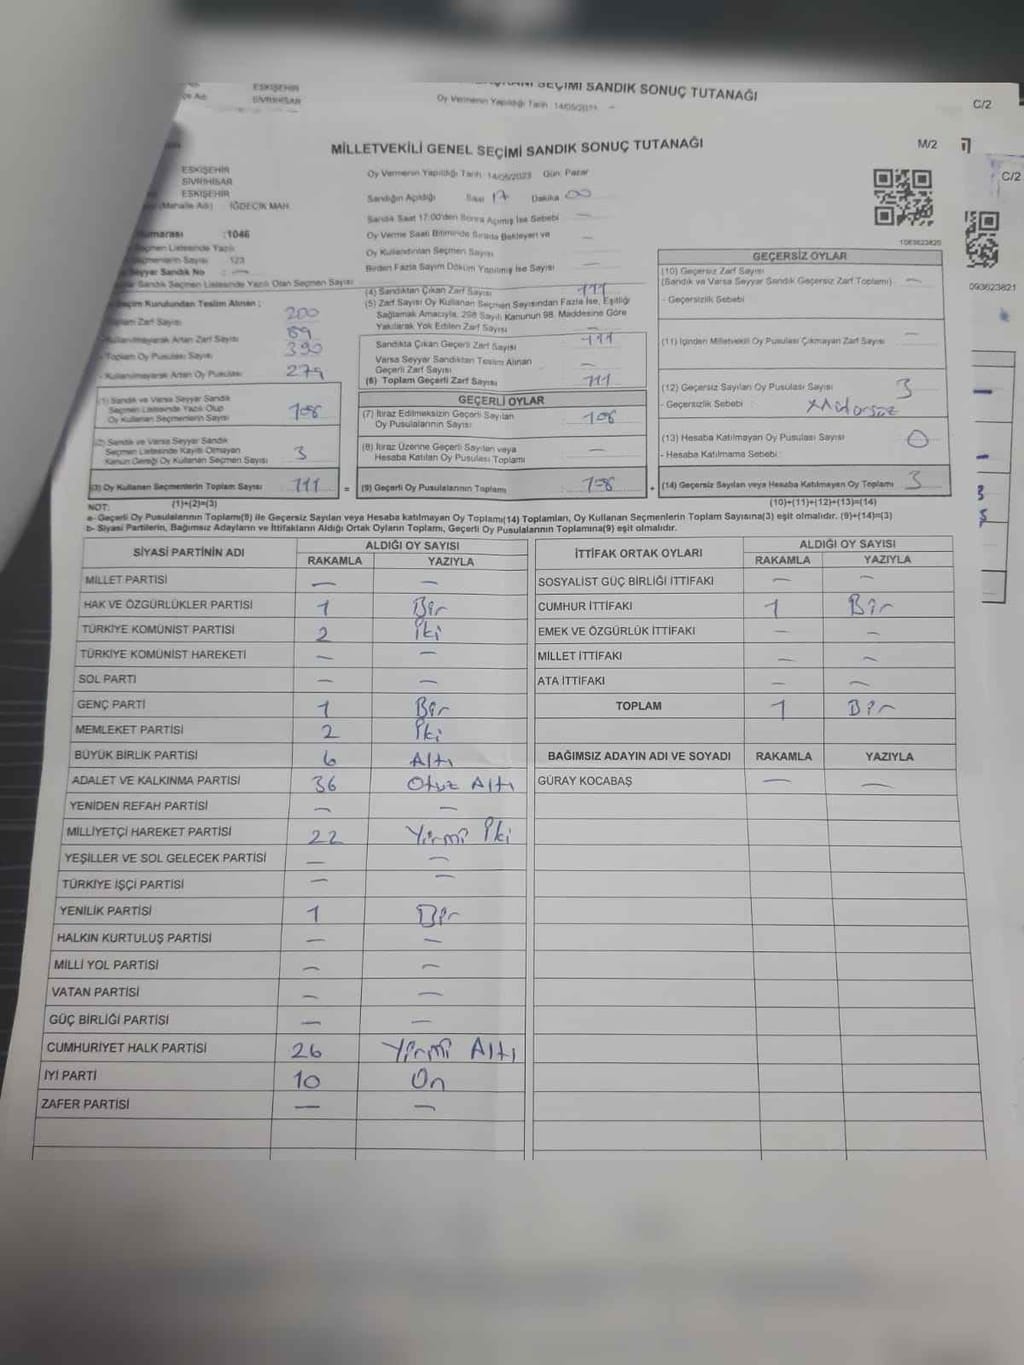 ESKİŞEHİR
SİVRİHİSAR
SEÇİMİ SANDIK SONUÇ TUTANAĞI
Oy Vermenin Yapıldığı Tarih
C/2
MİLLETVEKİLİ GENEL SEÇİMİ SANDIK SONUÇ TUTANAĞI
M/2
C/2
ESKİŞEHİR
SİVRİHİSAR
ESKİŞEHİR
(Mahalle Adı) İĞDECİK MAH.
:1046
123
Seyyar Sandık No : —
Sandık Seçmen Listesinde Yazılı Olan Seçmen Sayısı
Oy Vermenin Yapıldığı Tarih 14/05/2023 Gün Pazar
Sandığın Açıldığı Saat 17 Dakika 00
Sandık Saat 17:00'den Sonra Açılmış İse Sebebi —
Oy Verme Saati Bitiminde Sırada Bekleyen ve
Oy Kullandırılan Seçmen Sayısı —
Birden Fazla Sayım Döküm Yapılmış İse Sayısı —
1063623820
093623821
Seçim Kurulundan Teslim Alınan ;
Toplam Zarf Sayısı 200
Kullanılmayarak Artan Zarf Sayısı 89
- Toplam Oy Pusulası Sayısı 390
- Kullanılmayarak Artan Oy Pusulası 279
(1) Sandık ve Varsa Seyyar Sandık
Seçmen Listesinde Yazılı Olup
Oy Kullanan Seçmenlerin Sayısı 108
(2) Sandık ve Varsa Seyyar Sandık
Seçmen Listesinde Kaydı Olmayan
Kanun Gereği Oy Kullanan Seçmen Sayısı 3
(3) Oy Kullanan Seçmenlerin Toplam Sayısı 111
(1)+(2)=(3)
(4) Sandıktan Çıkan Zarf Sayısı 111
(5) Zarf Sayısı Oy Kullanan Seçmen Sayısından Fazla İse, Eşitliği
Sağlamak Amacıyla, 298 Sayılı Kanunun 98. Maddesine Göre
Yakılarak Yok Edilen Zarf Sayısı —
Sandıkta Çıkan Geçerli Zarf Sayısı 111
Varsa Seyyar Sandıktan Teslim Alınan
Geçerli Zarf Sayısı —
(6) Toplam Geçerli Zarf Sayısı 111
GEÇERLİ OYLAR
(7) İtiraz Edilmeksizin Geçerli Sayılan
Oy Pusulalarının Sayısı 108
(8) İtiraz Üzerine Geçerli Sayılan veya
Hesaba Katılan Oy Pusulası Toplamı —
= (9) Geçerli Oy Pusulalarının Toplamı 108 +
GEÇERSİZ OYLAR
(10) Geçersiz Zarf Sayısı
(Sandık ve Varsa Seyyar Sandık Geçersiz Zarf Toplamı) —
- Geçersizlik Sebebi
(11) İçinden Milletvekili Oy Pusulası Çıkmayan Zarf Sayısı —
(12) Geçersiz Sayılan Oy Pusulası Sayısı 3
- Geçersizlik Sebebi :
(13) Hesaba Katılmayan Oy Pusulası Sayısı 0
- Hesaba Katılmama Sebebi :
(14) Geçersiz Sayılan veya Hesaba Katılmayan Oy Toplamı 3
(10)+(11)+(12)+(13)=(14)
NOT:
a- Geçerli Oy Pusulalarının Toplamı(9) ile Geçersiz Sayılan veya Hesaba katılmayan Oy Toplamı(14) Toplamları, Oy Kullanan Seçmenlerin Toplam Sayısına(3) eşit olmalıdır. (9)+(14)=(3)
b- Siyasi Partilerin, Bağımsız Adayların ve İttifakların Aldığı Ortak Oyların Toplamı, Geçerli Oy Pusulalarının Toplamına(9) eşit olmalıdır.
SİYASİ PARTİNİN ADI ALDIĞI OY SAYISI
RAKAMLA YAZIYLA
MİLLET PARTİSİ — —
HAK VE ÖZGÜRLÜKLER PARTİSİ 1 Bir
TÜRKİYE KOMÜNİST PARTİSİ 2 İki
TÜRKİYE KOMÜNİST HAREKETİ — —
SOL PARTİ — —
GENÇ PARTİ 1 Bir
MEMLEKET PARTİSİ 2 İki
BÜYÜK BİRLİK PARTİSİ 6 Altı
ADALET VE KALKINMA PARTİSİ 36 Otuz Altı
YENİDEN REFAH PARTİSİ — —
MİLLİYETÇİ HAREKET PARTİSİ 22 Yirmi İki
YEŞİLLER VE SOL GELECEK PARTİSİ — —
TÜRKİYE İŞÇİ PARTİSİ — —
YENİLİK PARTİSİ 1 Bir
HALKIN KURTULUŞ PARTİSİ — —
MİLLİ YOL PARTİSİ — —
VATAN PARTİSİ — —
GÜÇ BİRLİĞİ PARTİSİ — —
CUMHURİYET HALK PARTİSİ 26 Yirmi Altı
İYİ PARTİ 10 On
ZAFER PARTİSİ — —
İTTİFAK ORTAK OYLARI ALDIĞI OY SAYISI
RAKAMLA YAZIYLA
SOSYALİST GÜÇ BİRLİĞİ İTTİFAKI — —
CUMHUR İTTİFAKI 1 Bir
EMEK VE ÖZGÜRLÜK İTTİFAKI — —
MİLLET İTTİFAKI — —
ATA İTTİFAKI — —
TOPLAM 1 Bir
BAĞIMSIZ ADAYIN ADI VE SOYADI RAKAMLA YAZIYLA
GÜRAY KOCABAŞ — —